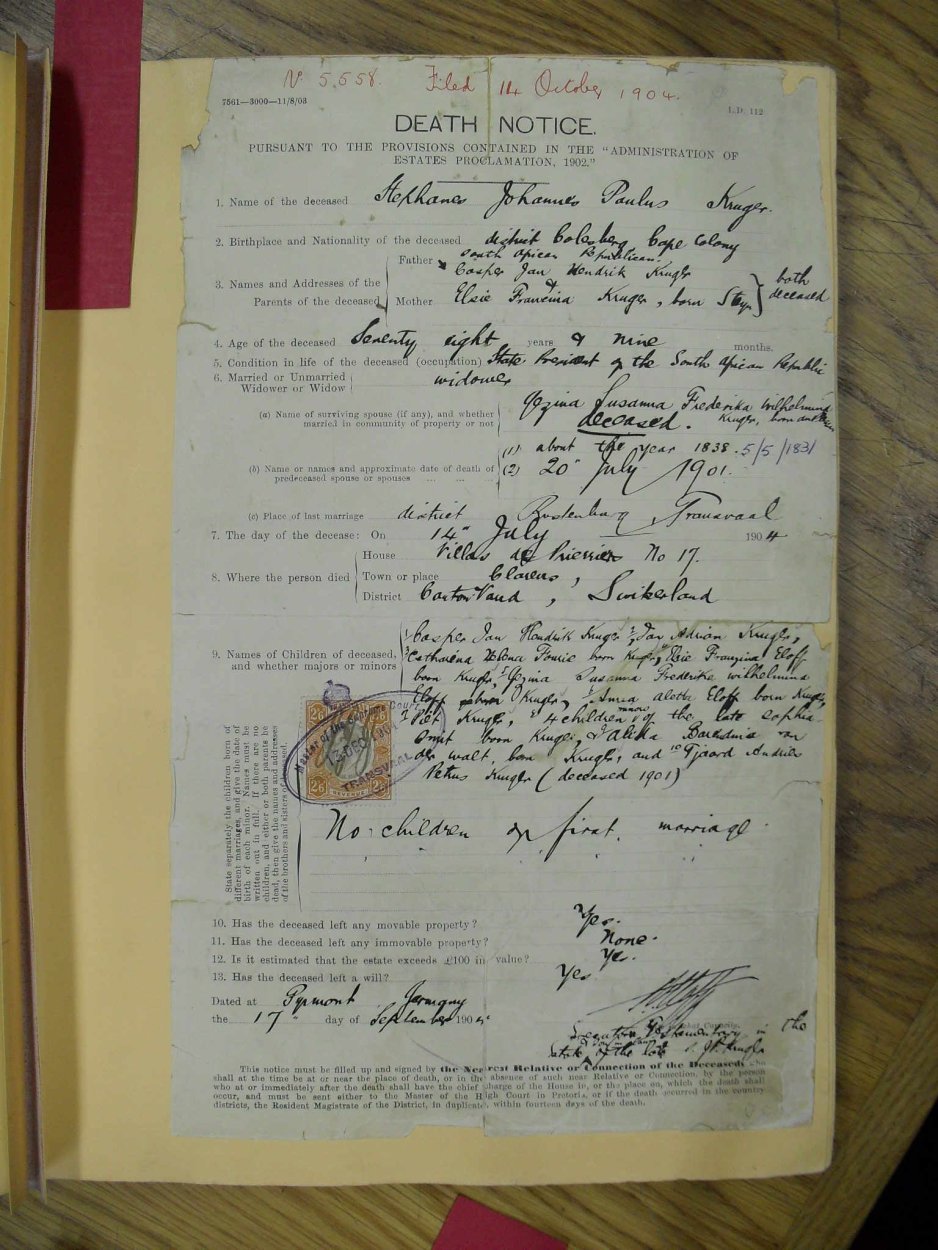 No 5,558. Filed 14 October 1904.
7561—3000—11/8/03
I.D. 112
DEATH NOTICE.
PURSUANT TO THE PROVISIONS CONTAINED IN THE "ADMINISTRATION OF
ESTATES PROCLAMATION, 1902."
1. Name of the deceased Stephanus Johannes Paulus Kruger.
2. Birthplace and Nationality of the deceased district Colesberg Cape Colony
South African Republican.
3. Names and Addresses of the Parents of the deceased
Father Casper Jan Hendrik Kruger
Mother Elsie Francina Kruger, born Steyn
both deceased
4. Age of the deceased Seventy eight years & nine months.
5. Condition in life of the deceased (occupation) State President of the South African Republic
6. Married or Unmarried widower
Widower or Widow
(a) Name of surviving spouse (if any), and whether
married in community of property or not
Gezina Susanna Frederika Wilhelmina
Kruger, born
deceased.
(b) Name or names and approximate date of death of
predeceased spouse or spouses ... ... ...
(1) about the year 1838. 5/5/1831
(2) 20" July 1901.
(c) Place of last marriage district Rustenburg, Transvaal
7. The day of the decease: On 14" July 1904
8. Where the person died
House Villas No 17.
Town or place Clarens,
District Canton Vaud, Switzerland
9. Names of Children of deceased,
and whether majors or minors
1 Casper Jan Hendrik Kruger, 2 Jan Adrian Kruger,
3 Catharina Helena Fourie born Kruger, 4 Elsie Francina Eloff
born Kruger, 5 Gezina Susanna Frederika Wilhelmina
Eloff born Kruger, 6 Anna Aletta Eloff born Kruger,
7 Piet Kruger, 8 4 children minors of the late Sophia
Smit born Kruger, 9 van
der Walt, born Kruger, and 10 Tjaard Andries
Petrus Kruger (deceased 1901)
State separately the children born of
different marriages, and give the date of
birth of each minor. Names must be
written out in full. If there are no
children, and either or both parents be
dead, then give the names and addresses
of the brothers and sisters of deceased.
2/6 2/6
Master of the Supreme Court
13 DEC 1904
TRANSVAAL
2/6 REVENUE 2/6
No children of first marriage
10. Has the deceased left any movable property? Yes.
11. Has the deceased left any immovable property? None.
12. Is it estimated that the estate exceeds £100 in value? Yes.
13. Has the deceased left a will? Yes
Dated at Pyrmont, Germany
the 17" day of September 1904
Executor Testamentary in the
Estate of the late S. J. P. Kruger
This notice must be filled up and signed by the Nearest Relative or Connection of the Deceased, who
shall at the time be at or near the place of death, or in the absence of such near Relative or Connection, by the person
who at or immediately after the death shall have the chief charge of the House in, or the place on, which the death shall
occur, and must be sent either to the Master of the High Court in Pretoria, or if the death occurred in the country
districts, the Resident Magistrate of the District, in duplicate, within fourteen days of the death.